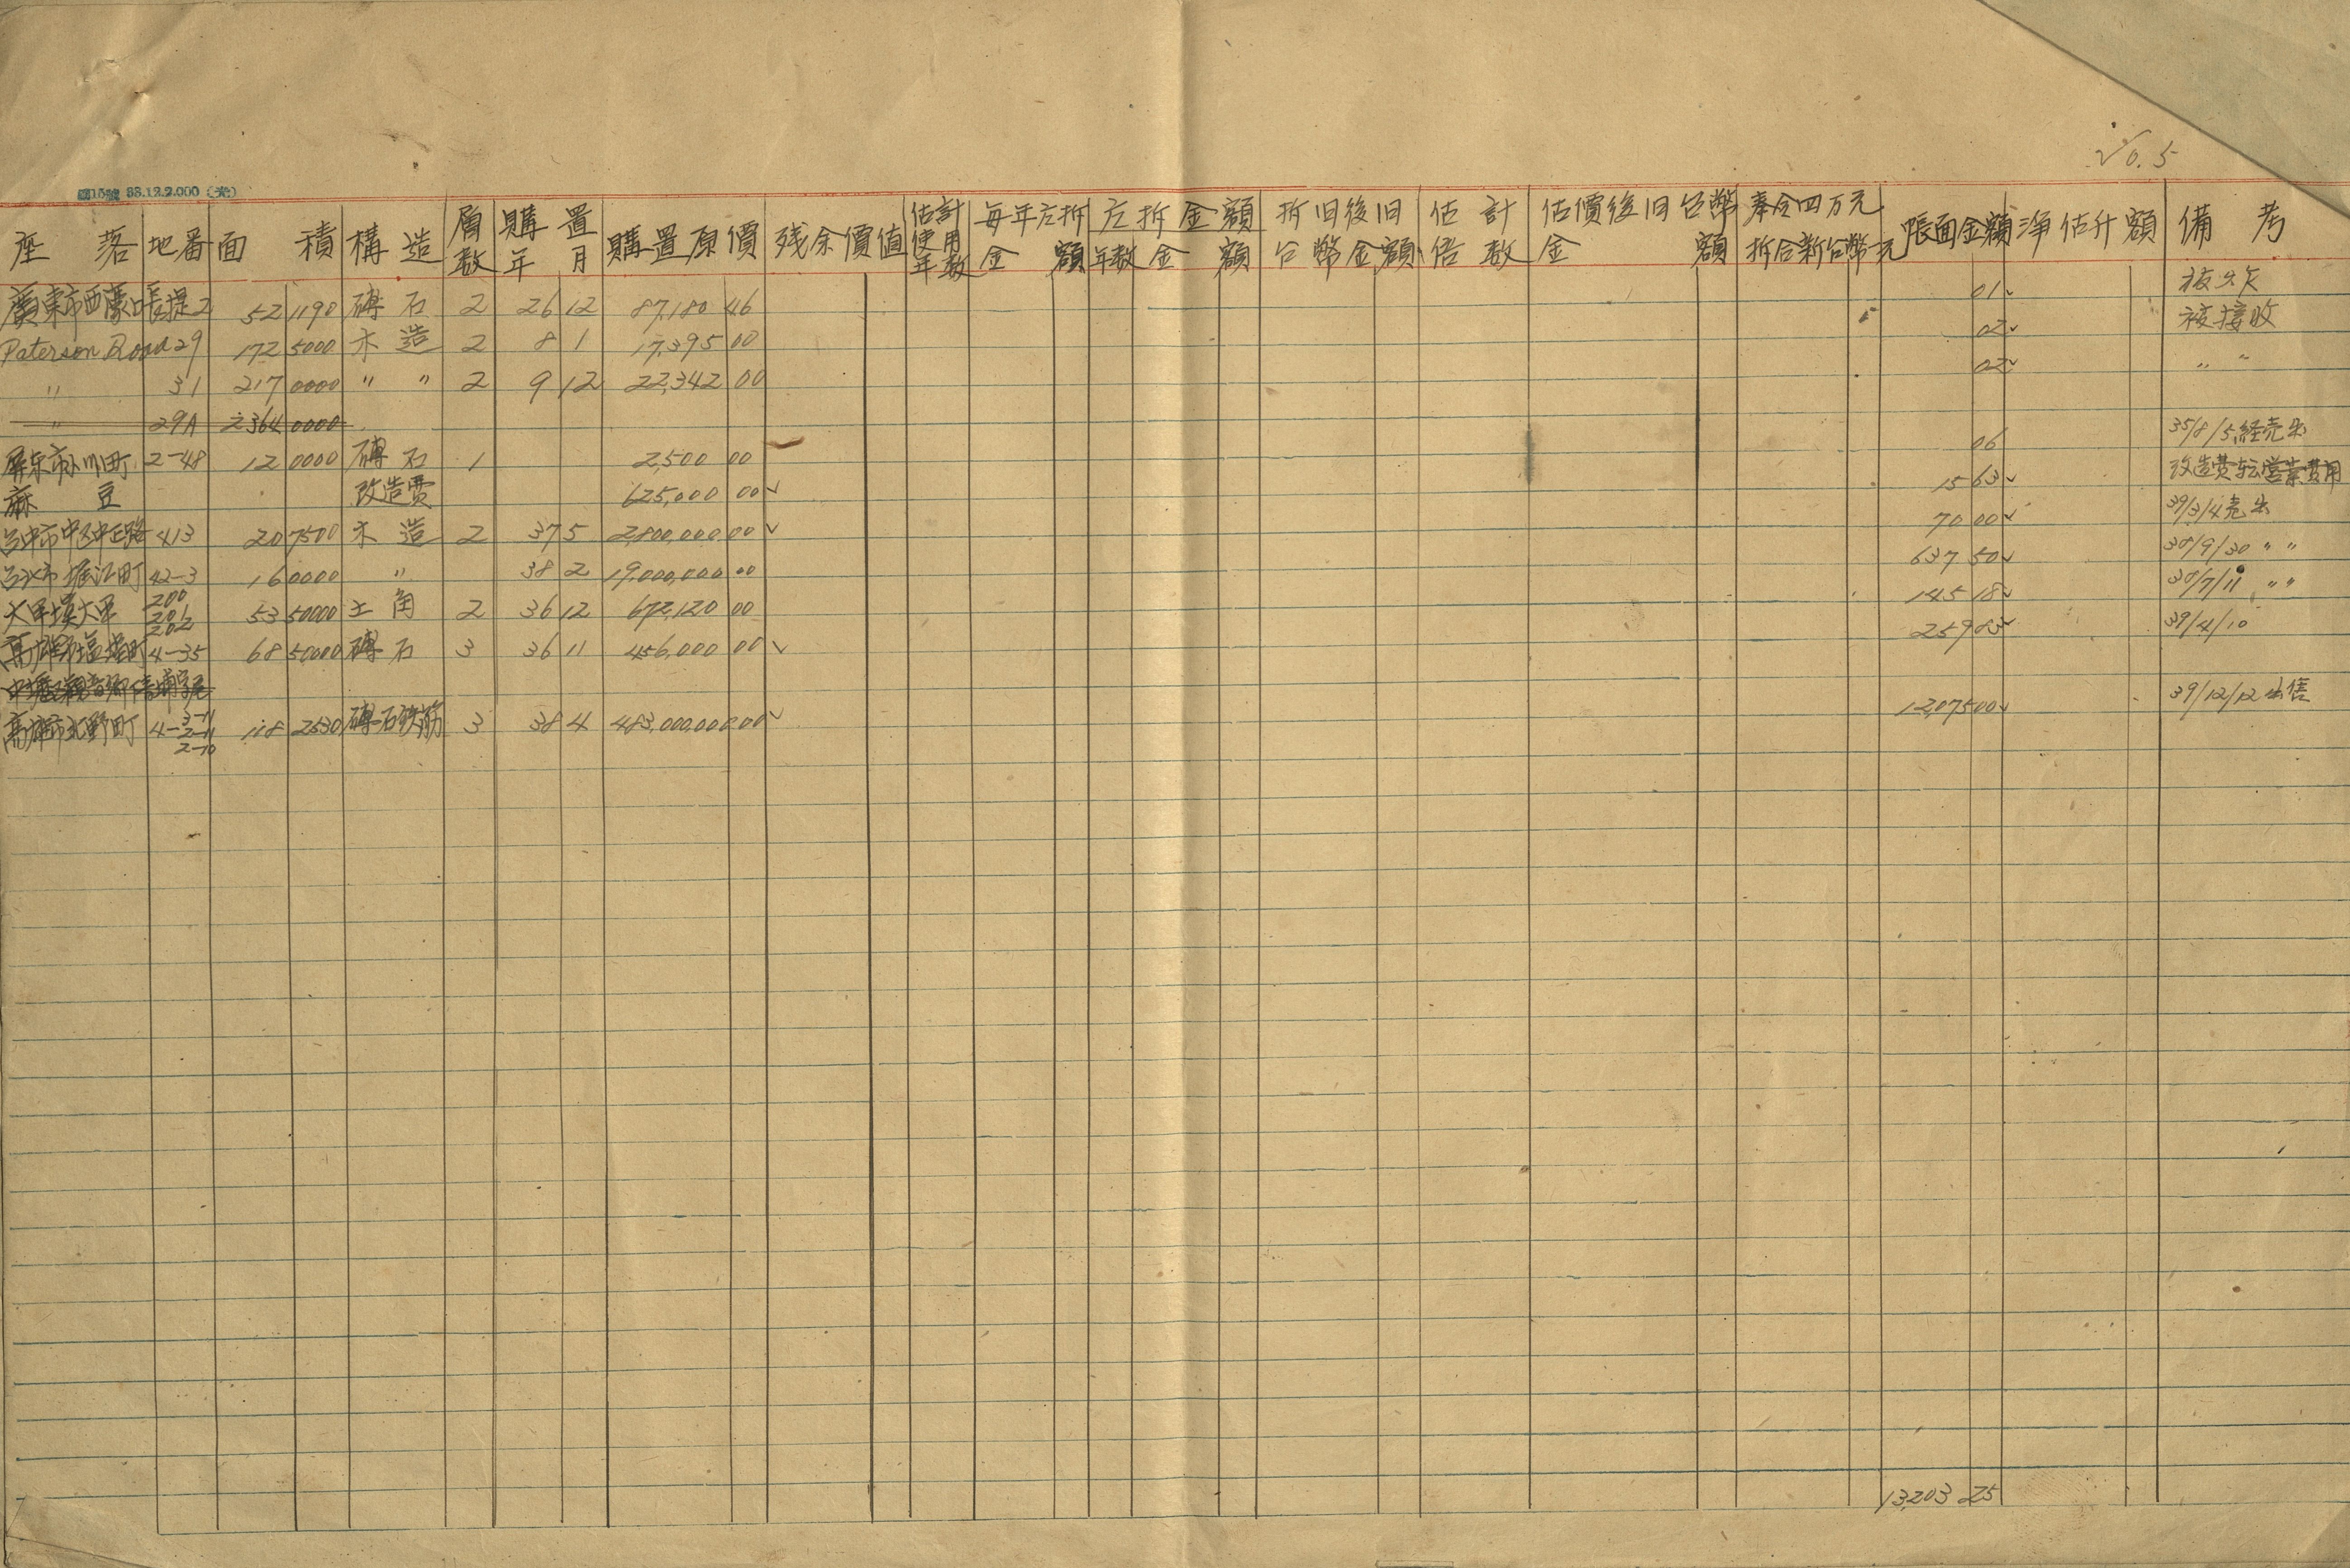 √0.5
第15號 38.12.2.000 (光)
座落 地番 面積 構造 層數 購置年月 購置原價 殘余價值 估計使用年數 每年应折金額 应折金額 年数 金額 折旧後旧台幣金額 估計倍數 估價後旧台幣金額 奉令四万元折合新台幣元 賬面金額 淨估升額 備考
廣東市西豪口長提2 52 1190 磚石 2 26 12 87,180 46 01
Paterson Road 29 172 5000 木造 2 8 1 17,395 00 02 被接收
〃 31 217 0000 〃 〃 2 9 12 22,342 00 02 〃 〃
〃 29A 2364 0000
屏东市小川町 2-48 12 0000 磚石 1 2,500 00 06 35/8/5,経売出
麻豆 改造費 625,000 00 15 63 改造費転営業費用
台中市中区中正路 413 20 7500 木造 2 37 5 2,800,000 00 70 00 39/3/4売出
台北市堀江町 42-3 16 0000 〃 38 2 19,000,000 00 637 50 38/9/30 〃 〃
大甲埧大甲 200 201 202 53 50000 土角 2 36 12 672,120 00 145 18 38/7/11 〃 〃
高雄市塩埕町 4-35 68 50000 磚石 3 36 11 456,000 00 259 83 39/4/10
高雄市北野町 4-3-11 2-11 2-10 118 2630 磚石鉄筋 3 38 4 483,000,000 00 12,075 00 39/12/12出售
13,203 25